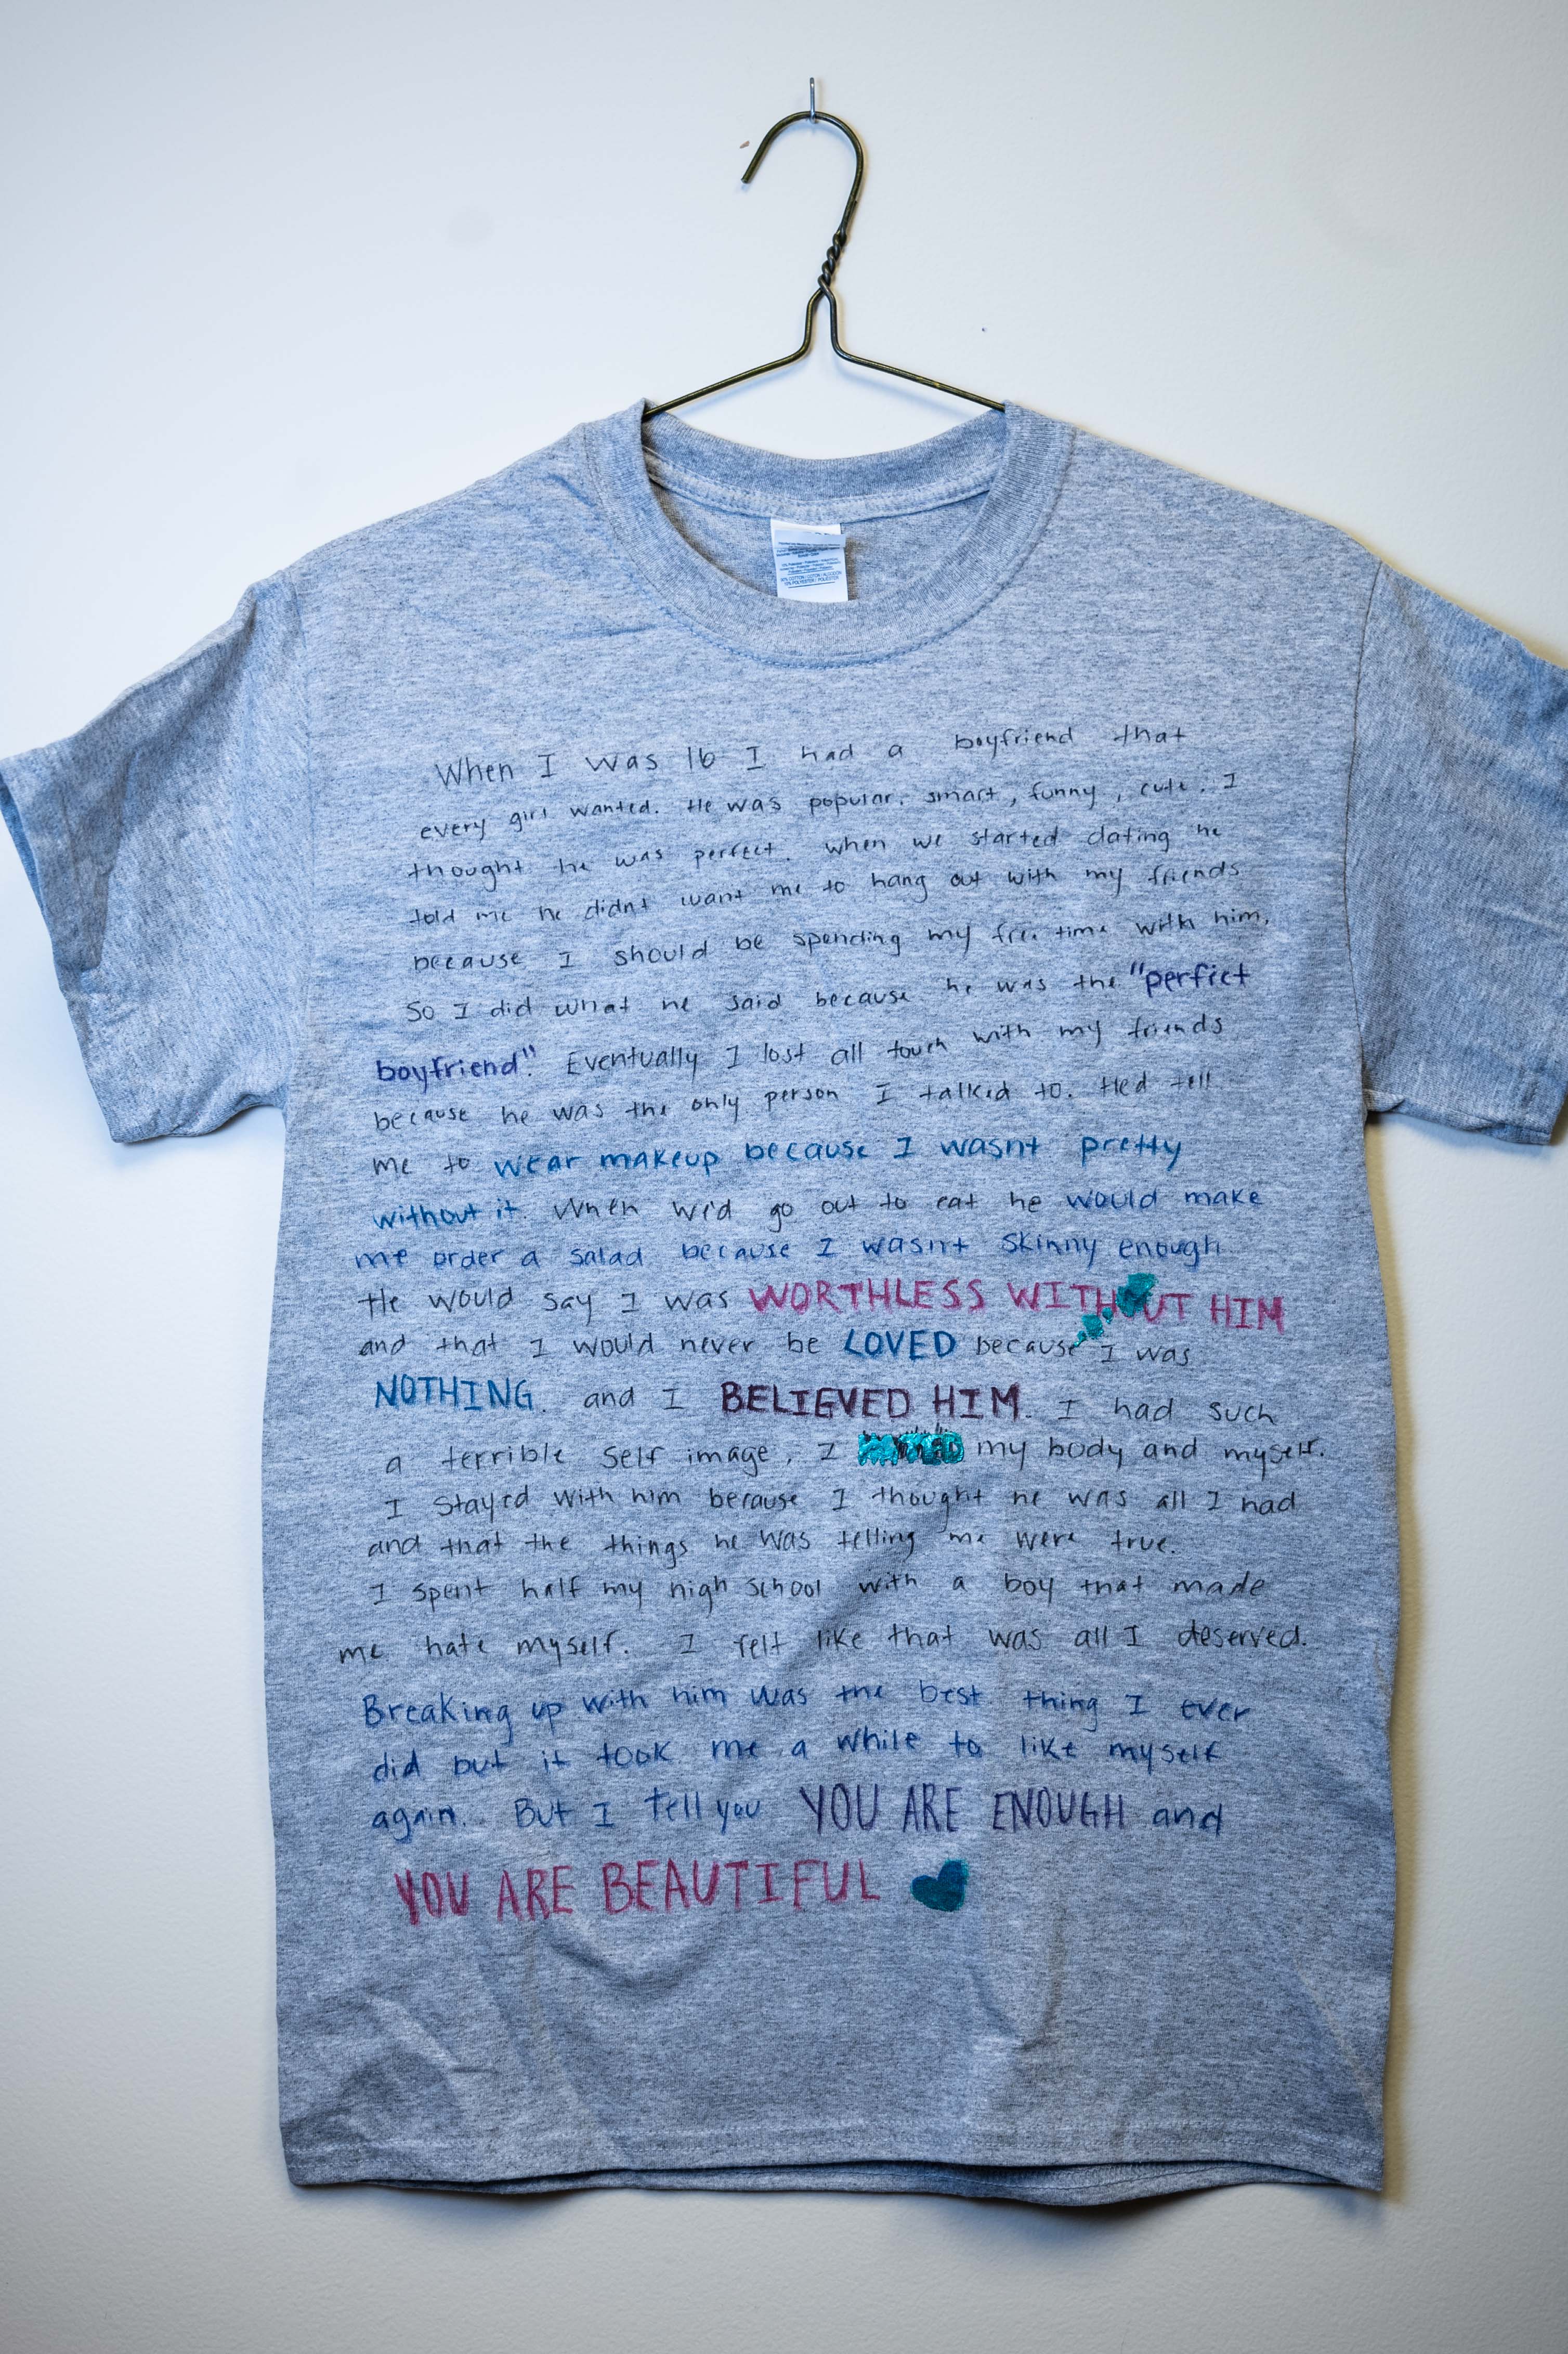 When I was 16 I had a boyfriend that
every girl wanted. He was popular, smart, funny, cute. I
thought he was perfect. When we started dating he
told me he didnt want me to hang out with my friends
because I should be spending my free time with him,
So I did what he said because he was the "perfect
boyfriend". Eventually I lost all touch with my friends
because he was the only person I talked to. Hed tell
me to wear makeup because I wasnt pretty
without it. When we'd go out to eat he would make
me order a salad because I wasnt skinny enough
He would say I was WORTHLESS WITHOUT HIM
and that I would never be LOVED because I was
NOTHING. and I BELIEVED HIM. I had such
a terrible self image, I my body and myself.
I stayed with him because I thought he was all I had
and that the things he was telling me were true.
I spent half my high school with a boy that made
me hate myself. I felt like that was all I deserved.
Breaking up with him was the best thing I ever
did but it took me a while to like myself
again. But I tell you YOU ARE ENOUGH and
YOU ARE BEAUTIFUL